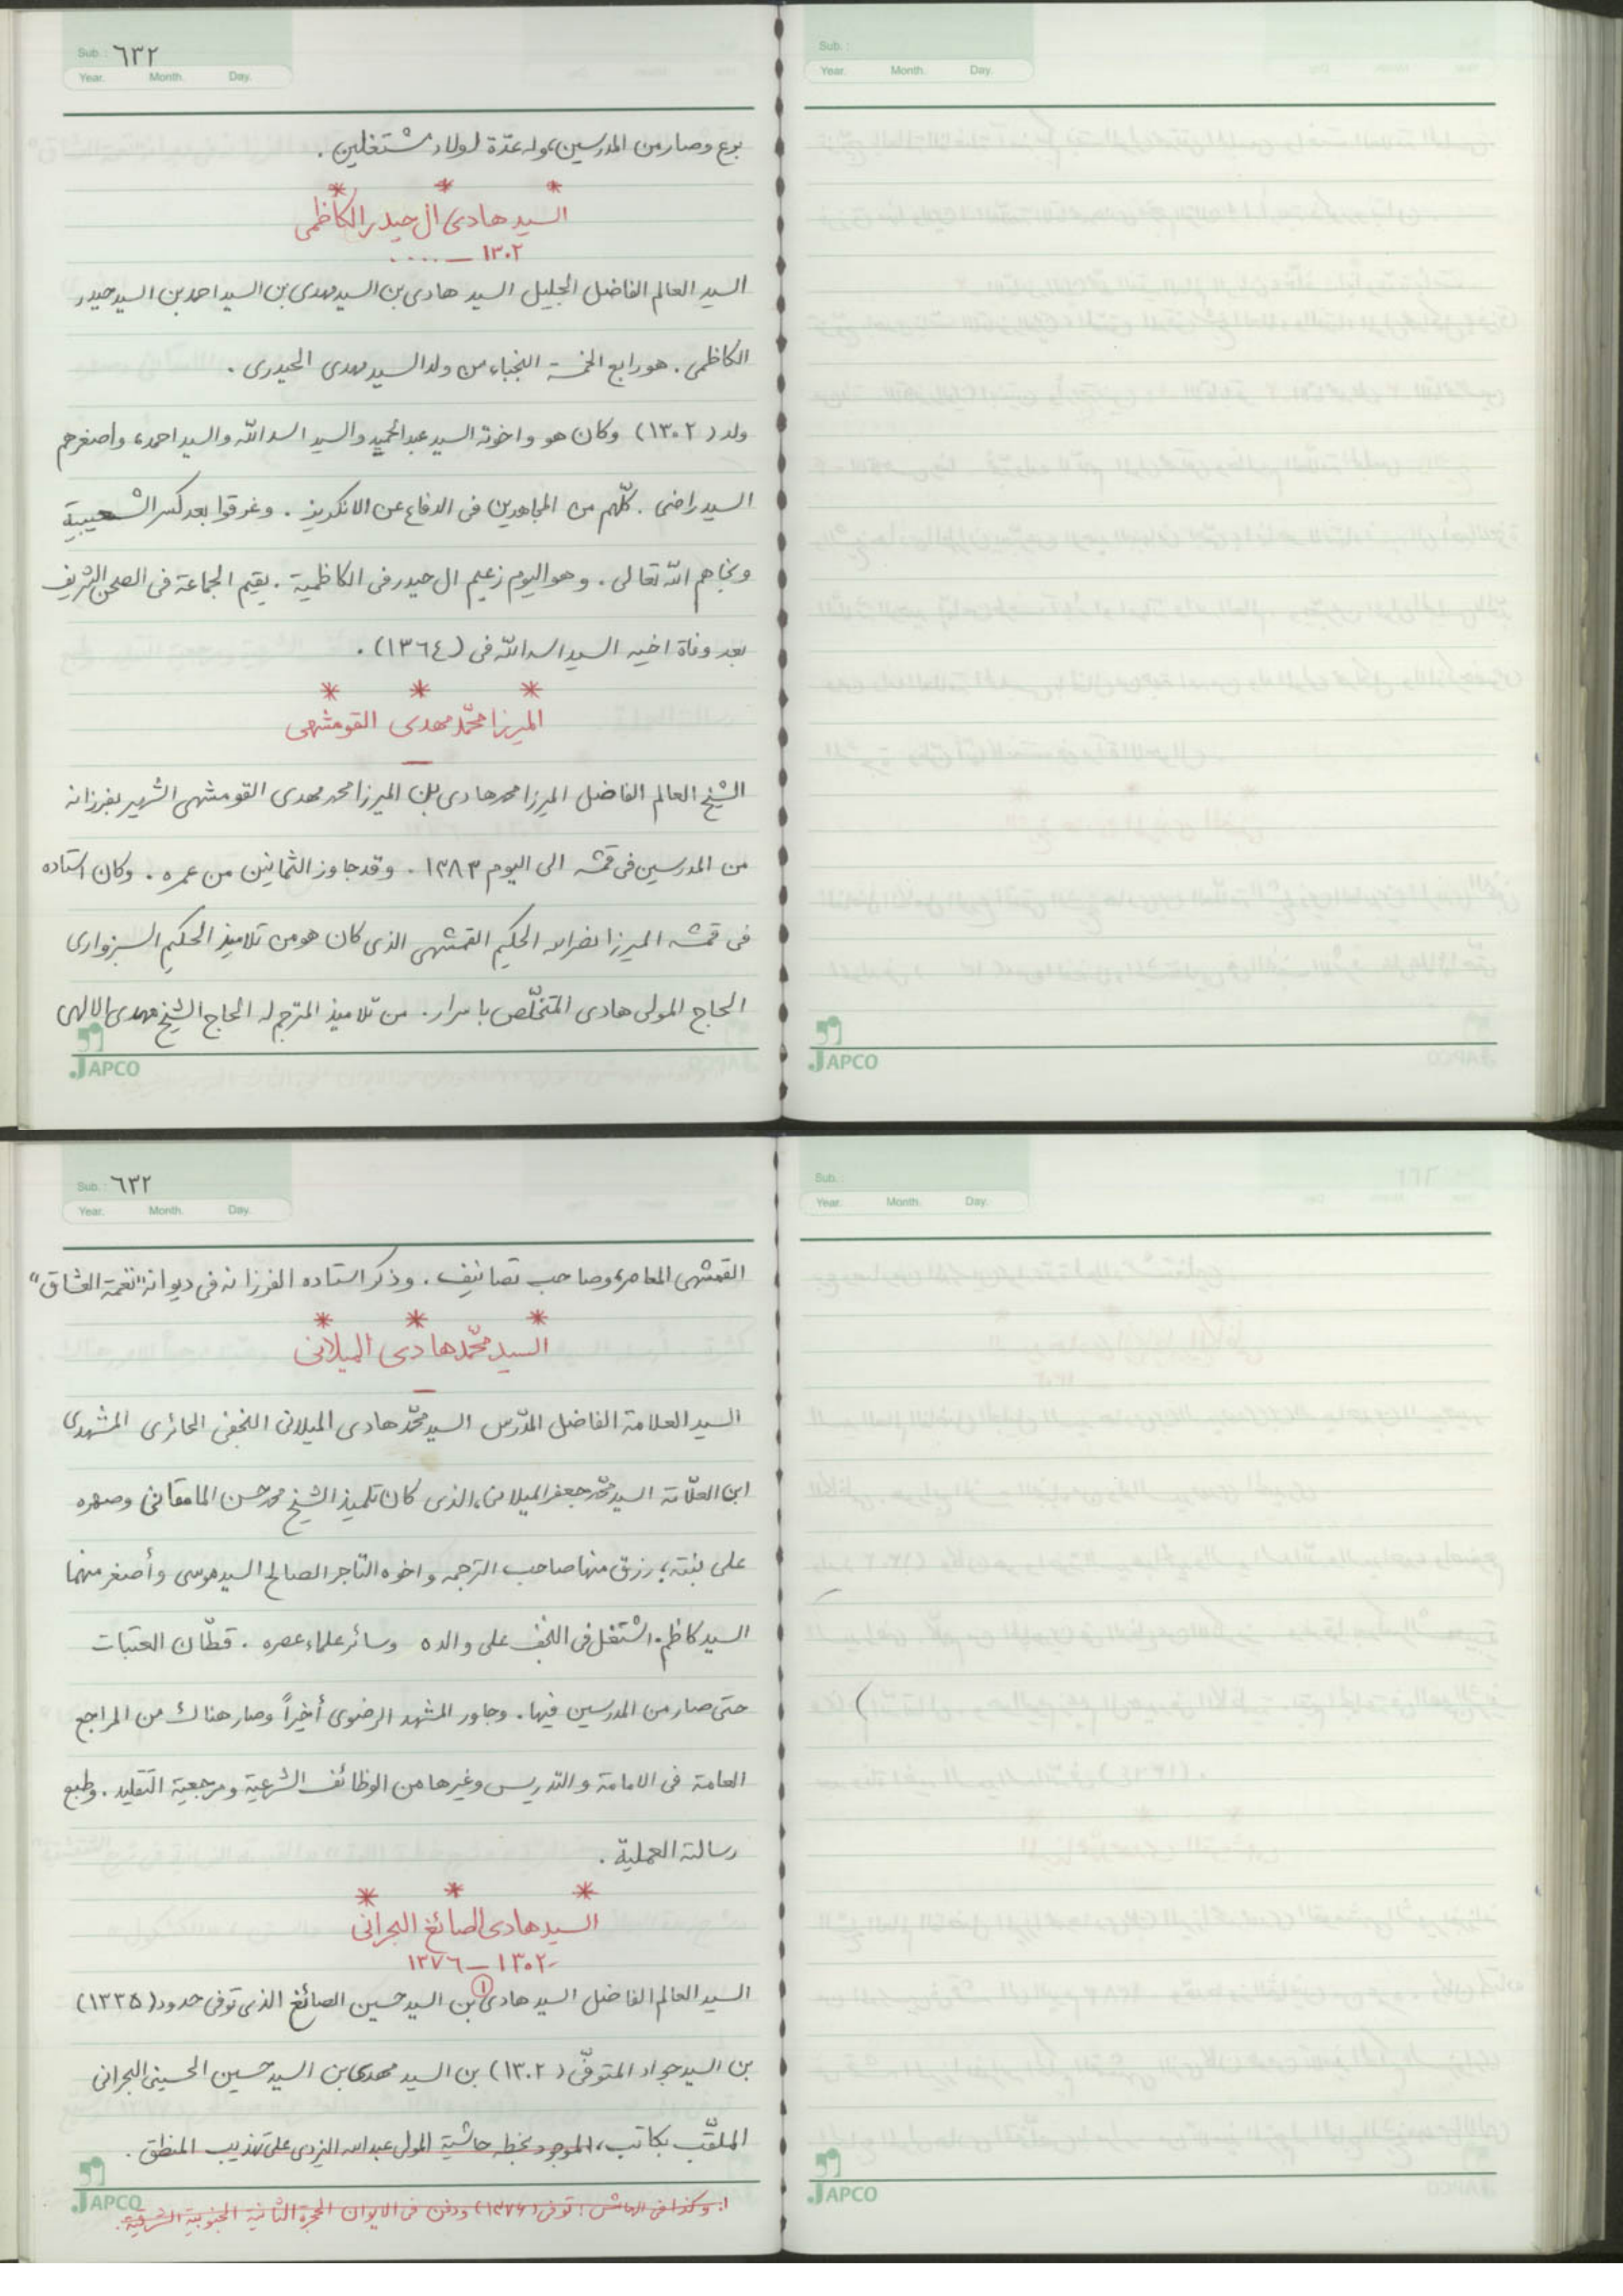 Sub.: ٦٣٢
Year. Month. Day.
برع وصار من المدرسين، وله عدّة اولاد مشتغلين .
* * *
السيد هادى ال حيدر الكاظمى
١٣٠٢ – ....
السيد العالم الفاضل الجليل السيد هادى بن السيد مهدى بن السيد احمد بن السيد حيدر
الكاظمى . هو رابع الخمسة النجباء من ولد السيد مهدى الحيدرى .
ولد (١٣٠٢) وكان هو واخوته السيد عبد الحميد والسيد اسد الله والسيد احمد، واصغرهم
السيد راضى . كلّهم من المجاهدين فى الدفاع عن الانكريز . وغرقوا بعد كسر الشعيبية
ونجاهم الله تعالى . وهو اليوم زعيم ال حيدر فى الكاظمية . يقيم الجماعة فى الصحن الشريف
بعد وفاة اخيه السيد اسد الله فى (١٣٦٤) .
* * *
الميرزا محمّد مهدى القومشهى
—
الشيخ العالم الفاضل الميرزا محمد هادى بن الميرزا محمد مهدى القومشهى الشهير بفرزانه
من المدرسين فى قمشه الى اليوم ١٣٨٣ . وقد جاوز الثمانين من عمره . وكان استاده
فى قمشه الميرزا نصر الله الحكيم القمشهى الذى كان هو من تلاميذ الحكيم السبزوارى
الحاج المولى هادى المتخلّص باسرار . من تلاميذ المترجم له الحاج الشيخ مهدى الالهى
JAPCO
Sub.:
Year. Month. Day.
JAPCO
Sub.: ٦٣٢
Year. Month. Day.
القمشهى المعاصر، وصاحب تصانيف . وذكر استاده الفرزانه فى ديوانه "نغمة العشاق"
* * *
السيد محمّد هادى الميلانى
—
السيد العلامة الفاضل المدّرس السيد محمّد هادى الميلانى النجفى الحائرى المشهدى
ابن العلّامة السيد محمّد جعفر الميلانى، الذى كان تلميذ الشيخ محمد حسن المامقانى وصهره
على بنته، رزق منها صاحب الترجمه واخوه التّاجر الصالح السيد موسى وأصغر منهما
السيد كاظم . اشتغل فى النجف على والده وسائر علماء عصره . قطّان العتبات
حتى صار من المدرسين فيها . وجاور المشهد الرضوى أخيراً وصار هناك من المراجع
العامة فى الامامة والتدريس وغيرها من الوظائف الشرعية ومرجعية التقليد . وطبع
رسالته العملية .
* * *
السيد هادى الصائغ البحرانى
١٣٠٢ – ١٣٧٦
السيد العالم الفاضل السيد هادى (١) بن السيد حسين الصائغ الذى توفى حدود (١٣٣٥)
بن السيد جواد المتوفّى (١٣٠٢) بن السيد مهدى بن السيد حسين الحسينى البحرانى
الملقّب بكاتب، الموجود بخطه حاشية المولى عبد الله اليزدى على تهذيب المنطق .
١. وكذا فى الهامش : توفى (١٣٧٦) ودفن فى الايوان الحجرة الثانية الجنوبية الشرقية .
JAPCO
Sub.:
Year. Month. Day.
JAPCO